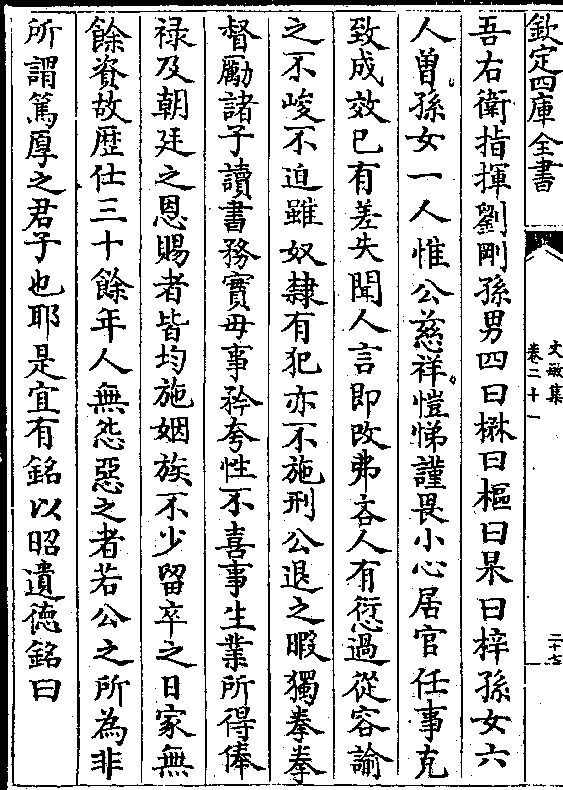 欽定四庫全書
文敏集
卷二十一
二十七
吾右衛指揮劉剛孫男四曰楙曰樞曰杲曰梓孫女六
人曽孫女一人惟公慈祥愷悌謹畏小心居官任事克
致成效已有差失聞人言即改弗吝人有愆過從容諭
之不峻不迫雖奴隸有犯亦不施刑公退之暇獨拳拳
督勵諸子讀書務實毋事矜夸性不喜事生業所得俸
禄及朝廷之恩賜者皆均施姻族不少留卒之日家無
餘資故歴仕三十餘年人無怨惡之者若公之所為非
所謂篤厚之君子也耶是宜有銘以昭遺德銘曰